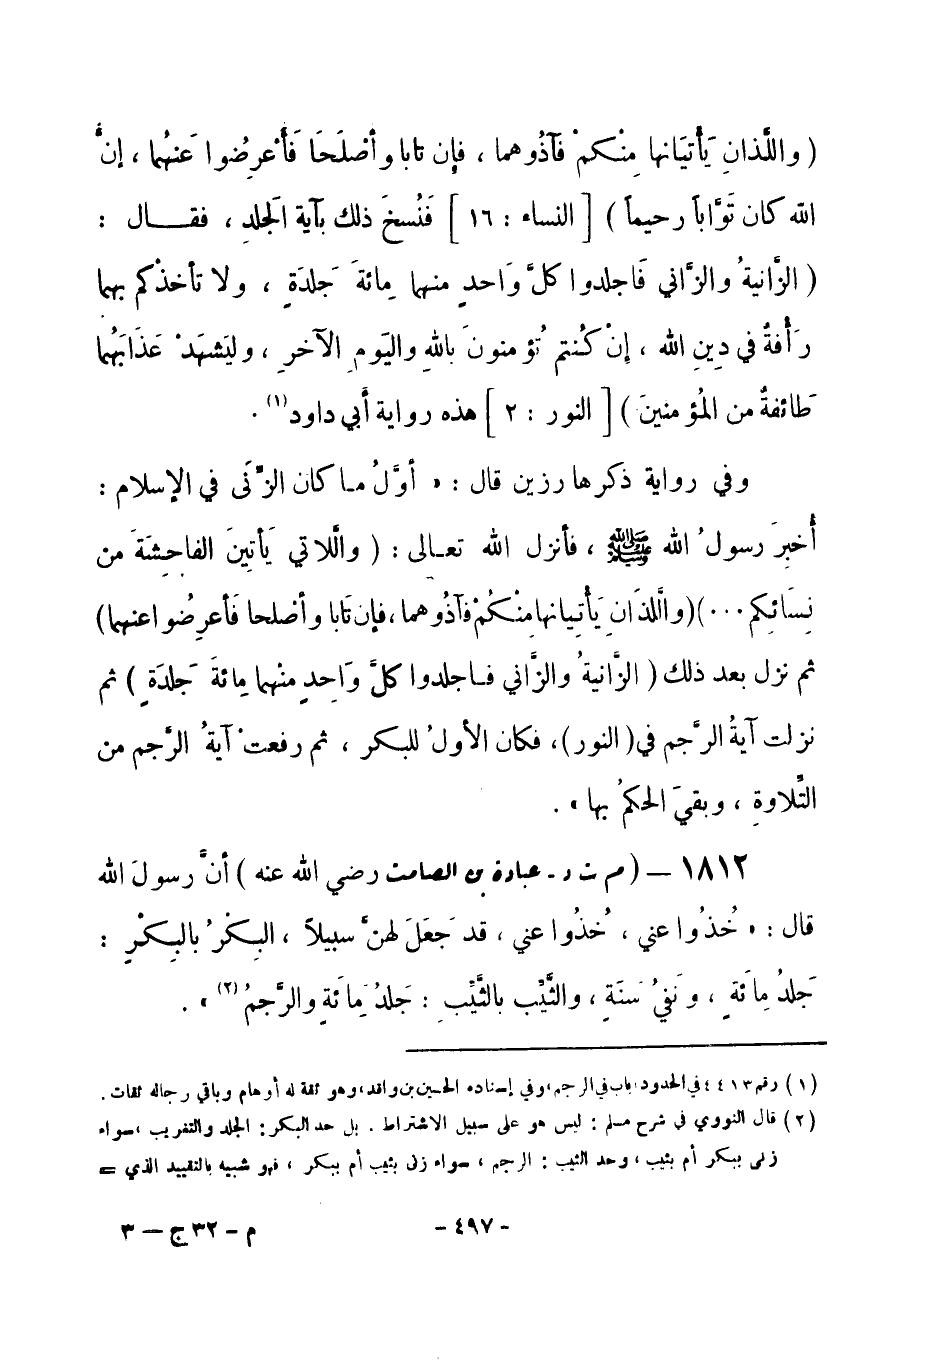 ( واللَّذانِ يَأْتيَانها مِنْكمْ فآذُوهما ، فإن تابا وأصْلَحَا فَأَعْرضُوا عَنهُما ، إنَّ
الله كان تَوَّاباً رحيماً ) [ النساء : ١٦ ] فَنُسخَ ذلك بآية الجَلدِ ، فقـــال :
( الزَّانيةُ والزَّاني فَاجلدوا كلَّ وَاحدٍ منهما مِائةَ جَلدَةٍ ، ولا تأخذْكم بهما
رَأفةٌ في دِينِ الله ، إنْ كُنتم تُؤمنونَ بالله واليَومِ الآخرِ ، وليَشهَدْ عَذَابَهُما
طَائفةٌ من المُؤمنينَ ) [ النور : ٢ ] هذه رواية أبي داود(١) .
وفي رواية ذكرها رزين قال : « أوَّلُ مـا كان الزِّنَى في الإسلام :
أُخبِرَ رسولُ الله ﷺ ، فأنزل الله تعـالى : ( واللَّاتي يَأتِينَ الفاحِشَةَ من
نِسَائِكم ...)(واللَّذَانِ يَأْتِيانها مِنـكُمْ فآذُوهما ، فإن تَابا وأصلحا فَأعرِضُوا عنهما)
ثم نزل بعد ذلك ( الزَّانيةُ والزَّاني فـاجلدوا كلَّ وَاحِدٍ مِنْهما مِائةَ جَلدَةٍ ) ثم
نزلت آيةُ الرَّجم في( النور)، فكان الأولُ للبكر ، ثم رفعتْ آيةُ الرَّجم من
التِّلاوةِ ، وبقيَ الحكمُ بها » .
١٨١٢ — ( م ت د ـ عبادة بن الصامت رضي الله عنه ) أنَّ رسولَ الله
قال : « خُذُوا عني ، خُذُوا عني ، قد جَعَلَ لهنَّ سبيلاً ، البـكْرُ بالبِـكْرِ :
جَلدُ مِائَةٍ ، ونَفيُ سَنَةٍ ، والثَّيِّب بالثَّيِّبِ : جَلدُ مِائَةٍ والرَّجمُ(٢) » .
(١) رقم ٤٤١٣ في الحدود ، باب في الرجم ، وفي إسناده الحسين بن واقد ، وهو ثقة له أوهام وباقي رجاله ثقات .
(٢) قال النووي في شرح مسلم : ليس هو على سبيل الاشتراط . بل حد البكر : الجلد والتغريب ، سواء
زنى ببكر أم بثيب ، وحد الثيب : الرجم ، سواء زنى بثيب أم ببكر ، فهو شبيه بالتقييد الذي =
- ٤٩٧ -
م - ٣٢ ج — ٣